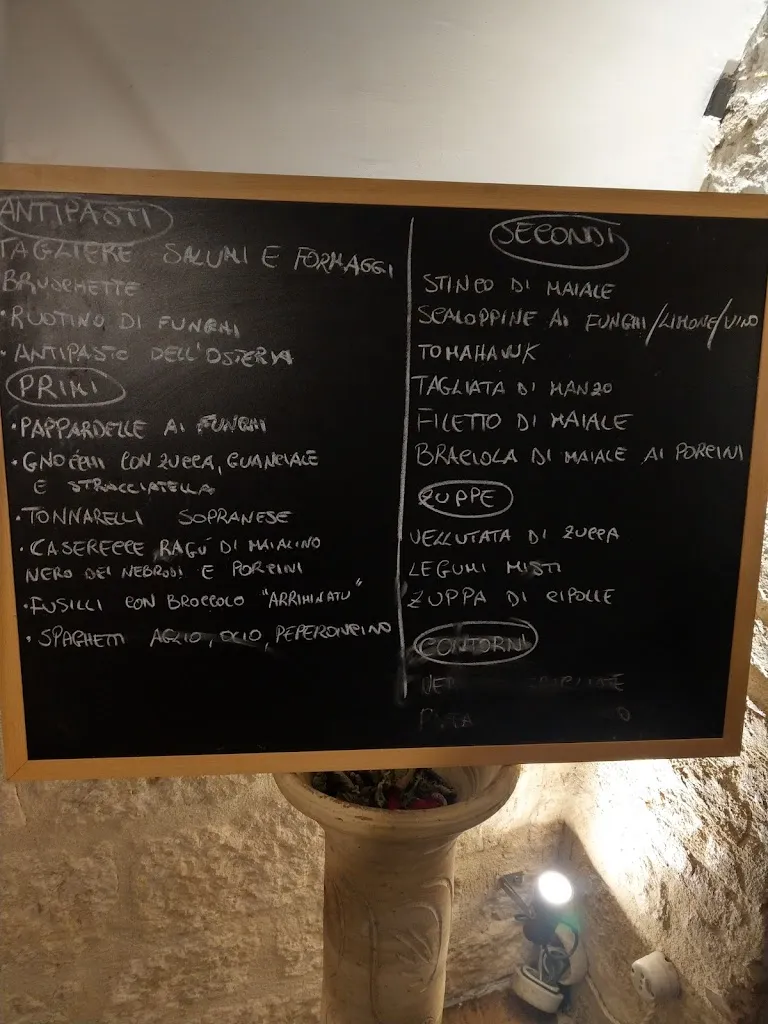 ANTIPASTI
TAGLIERE SALUMI E FORMAGGI
BRUSCHETTE
• RUOTINO DI FUNGHI
• ANTIPASTO DELL'OSTERIA
PRIMI
• PAPPARDELLE AI FUNGHI
• GNOCCHI CON ZUCCA, GUANCIALE
E STRACCIATELLA
• TONNARELLI SOPRANESE
• CASERECCE RAGÚ DI MAIALINO
NERO DEI NEBRODI E PORCINI
• FUSILLI CON BROCCOLO "ARRIMINATU"
• SPAGHETTI AGLIO, OLIO, PEPERONCINO
SECONDI
STINCO DI MAIALE
SCALOPPINE AI FUNGHI/LIMONE/VINO
TOMAHAWK
TAGLIATA DI MANZO
FILETTO DI MAIALE
BRACIOLA DI MAIALE AI PORCINI
ZUPPE
VELLUTATA DI ZUCCA
LEGUMI MISTI
ZUPPA DI CIPOLLE
CONTORNI